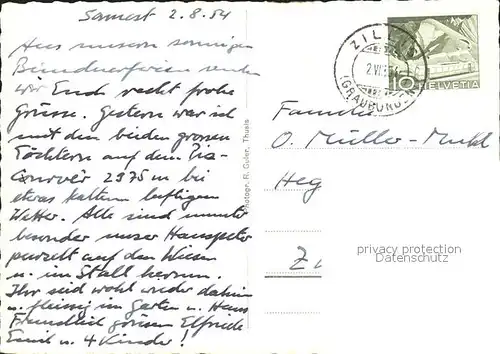 Samest 2.8.54
Aus unserm sonnigen
Bündnerferien senden
wir Euch recht frohe
Grüsse. Gestern war ich
mit den beiden grossen
Töchtern auf dem Piz-
Curvèr 2975 m bei
etwas kaltem luftigen
Wetter. Alle sind munter
besonder unser Hanspeter
purzelt auf den Wiesen
u. im Stall herum.
Ihr seid wohl wieder daheim
u. fleissig im Garten u. Haus
Freundlich grüssen Elfriede
Emil u. 4 Kinder!
Photogr. R. Guler, Thusis
ZILLIS
(GRAUBÜNDEN)
10 HELVETIA
Familie
O. Müller-
Heg
Z
privacy protection
Datenschutz